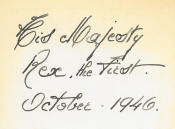 His Majesty
Rex, the First.
October - 1946.